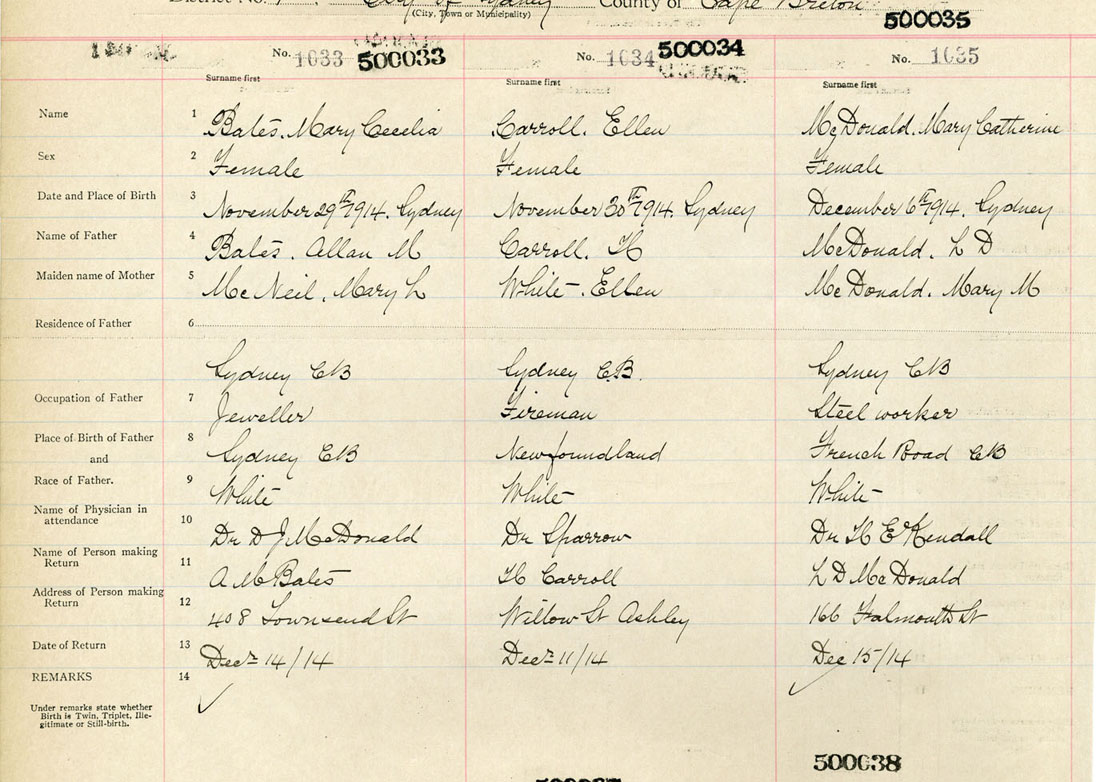 District No. City of Sydney County of Cape Breton
(City, Town or Municipality)
500035
No. 1033 500033 No. 1034 500034 No. 1035
Surname first Surname first Surname first
Name 1 Bates. Mary Cecelia Carroll. Ellen McDonald. Mary Catherine
Sex 2 Female Female Female
Date and Place of Birth 3 November 29th 1914. Sydney November 30th 1914. Sydney December 6th 1914. Sydney
Name of Father 4 Bates. Allan M Carroll. H McDonald. L D
Maiden name of Mother 5 McNeil. Mary L White. Ellen McDonald. Mary M
Residence of Father 6
Sydney CB Sydney C.B. Sydney CB
Occupation of Father 7 Jeweller Fireman Steel worker
Place of Birth of Father 8 Sydney CB Newfoundland French Road CB
and
Race of Father. 9 White White White
Name of Physician in
attendance 10 Dr D J McDonald Dr Sparrow Dr H E Kendall
Name of Person making
Return 11 A M Bates H Carroll L D McDonald
Address of Person making
Return 12 408 Townsend St Willow St Ashley 166 Falmouth St
Date of Return 13 Decr 14/14 Decr 11/14 Dec 15/14
REMARKS 14
Under remarks state whether
Birth is Twin, Triplet, Ille-
gitimate or Still-birth.
500038